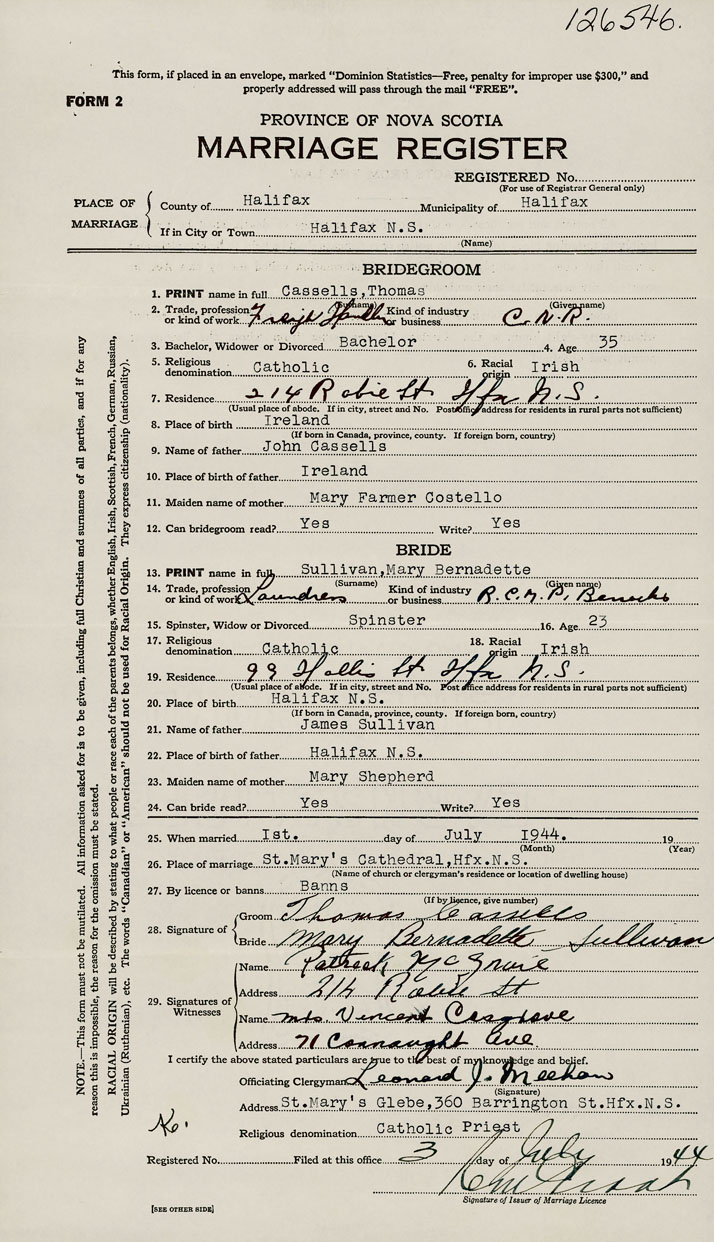 126546.
This form, if placed in an envelope, marked "Dominion Statistics—Free, penalty for improper use $300," and
properly addressed will pass through the mail "FREE".
FORM 2
PROVINCE OF NOVA SCOTIA
MARRIAGE REGISTER
REGISTERED No.
(For use of Registrar General only)
PLACE OF MARRIAGE
County of Halifax Municipality of Halifax
If in City or Town Halifax N.S.
(Name)
BRIDEGROOM
1. PRINT name in full Cassells,Thomas
(Surname) (Given name)
2. Trade, profession or kind of work Freigh Handler Kind of industry or business C.N.R.
3. Bachelor, Widower or Divorced Bachelor 4. Age 35
5. Religious denomination Catholic 6. Racial origin Irish
7. Residence 214 Robie St Hfx N.S.
(Usual place of abode. If in city, street and No. Post office address for residents in rural parts not sufficient)
8. Place of birth Ireland
(If born in Canada, province, county. If foreign born, country)
9. Name of father John Cassells
10. Place of birth of father Ireland
11. Maiden name of mother Mary Farmer Costello
12. Can bridegroom read? Yes Write? Yes
BRIDE
13. PRINT name in full Sullivan,Mary Bernadette
(Surname) (Given name)
14. Trade, profession or kind of work Laundress Kind of industry or business R.C.M.P. Barracks
15. Spinster, Widow or Divorced Spinster 16. Age 23
17. Religious denomination Catholic 18. Racial origin Irish
19. Residence 99 Hollis St Hfx N.S.
(Usual place of abode. If in city, street and No. Post office address for residents in rural parts not sufficient)
20. Place of birth Halifax N.S.
(If born in Canada, province, county. If foreign born, country)
21. Name of father James Sullivan
22. Place of birth of father Halifax N.S.
23. Maiden name of mother Mary Shepherd
24. Can bride read? Yes Write? Yes
25. When married 1st. day of July 1944. 19
(Month) (Year)
26. Place of marriage St.Mary's Cathedral,Hfx.N.S.
(Name of church or clergyman's residence or location of dwelling house)
27. By licence or banns Banns
(If by licence, give number)
28. Signature of
Groom Thomas Cassells
Bride Mary Bernadette Sullivan
29. Signatures of Witnesses
Name Patrick McGrave
Address 214 Robie St
Name Mrs Vincent Cosgrove
Address 71 Connaught Ave.
I certify the above stated particulars are true to the best of my knowledge and belief.
Officiating Clergyman Leonard J. Meehan
(Signature)
Address St.Mary's Glebe,360 Barrington St.Hfx.N.S.
Religious denomination Catholic Priest
Registered No. Filed at this office 3 day of July 1944
Signature of Issuer of Marriage Licence
[SEE OTHER SIDE]
NOTE.—This form must not be mutilated. All information asked for is to be given, including full Christian and surnames of all parties, and if for any
reason this is impossible, the reason for the omission must be stated.
RACIAL ORIGIN will be described by stating to what people or race each of the parents belongs, whether English, Irish, Scottish, French, German, Russian,
Ukrainian (Ruthenian), etc. The words "Canadian" or "American" should not be used for Racial Origin. They express citizenship (nationality).